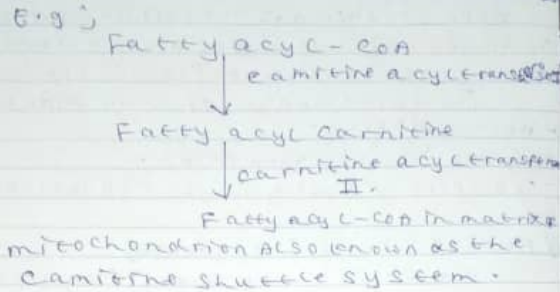 E.g ;
Fatty acyl - CoA
carnitine acyltransfer
Fatty acyl carnitine
carnitine acyltransfera
II.
Fatty acyl-CoA in matrix
mitochondrion Also known as the
carnitine shuttle system.